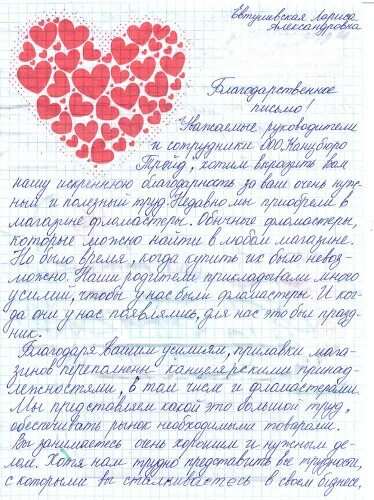 Евтушевская Лариса
Александровна
Благодарственное
письмо!
Уважаемые руководители
и сотрудники ООО „Канцбюро
Трейд", хотим выразить вам
нашу искреннюю благодарность за ваш очень нуж-
ный и полезный труд. Недавно мы приобрели в
магазине фломастеры. Обычные фломастеры,
которые можно найти в любом магазине.
Но было время, когда купить их было невоз-
можно. Наши родители прикладывали много
усилий, чтобы у нас были фломастеры. И ког-
да они у нас появлялись, для нас это был празд-
ник.
Благодаря вашим усилиям, прилавки мага-
зинов переполнены канцелярскими принад-
лежностями, в том числе и фломастерами.
Мы представляем какой это большой труд,
обеспечивать рынок необходимыми товарами.
Вы занимаетесь очень хорошим и нужным де-
лом. Хотя нам трудно представить все трудности,
с которыми вы сталкиваетесь в своем бизнесе,